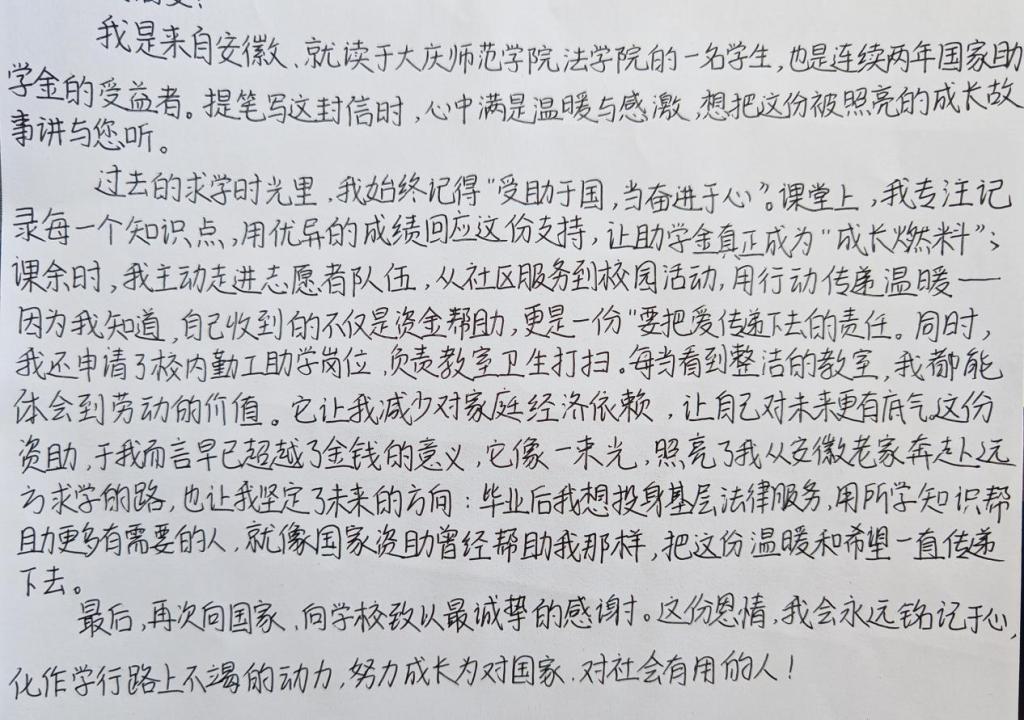 我是来自安徽、就读于大庆师范学院法学院的一名学生，也是连续两年国家助
学金的受益者。提笔写这封信时，心中满是温暖与感激，想把这份被照亮的成长故
事讲与您听。
过去的求学时光里，我始终记得“受助于国，当奋进于心”。课堂上，我专注记
录每一个知识点，用优异的成绩回应这份支持，让助学金真正成为“成长燃料”；
课余时，我主动走进志愿者队伍，从社区服务到校园活动，用行动传递温暖——
因为我知道，自己收到的不仅是资金帮助，更是一份“要把爱传递下去的责任。同时，
我还申请了校内勤工助学岗位，负责教室卫生打扫。每当看到整洁的教室，我都能
体会到劳动的价值。它让我减少对家庭经济依赖，让自己对未来更有底气。这份
资助，于我而言早已超越了金钱的意义，它像一束光，照亮了我从安徽老家奔赴远
方求学的路，也让我坚定了未来的方向：毕业后我想投身基层法律服务，用所学知识帮
助更多有需要的人，就像国家资助曾经帮助我那样，把这份温暖和希望一直传递
下去。
最后，再次向国家、向学校致以最诚挚的感谢。这份恩情，我会永远铭记于心，
化作学行路上不竭的动力，努力成长为对国家、对社会有用的人！